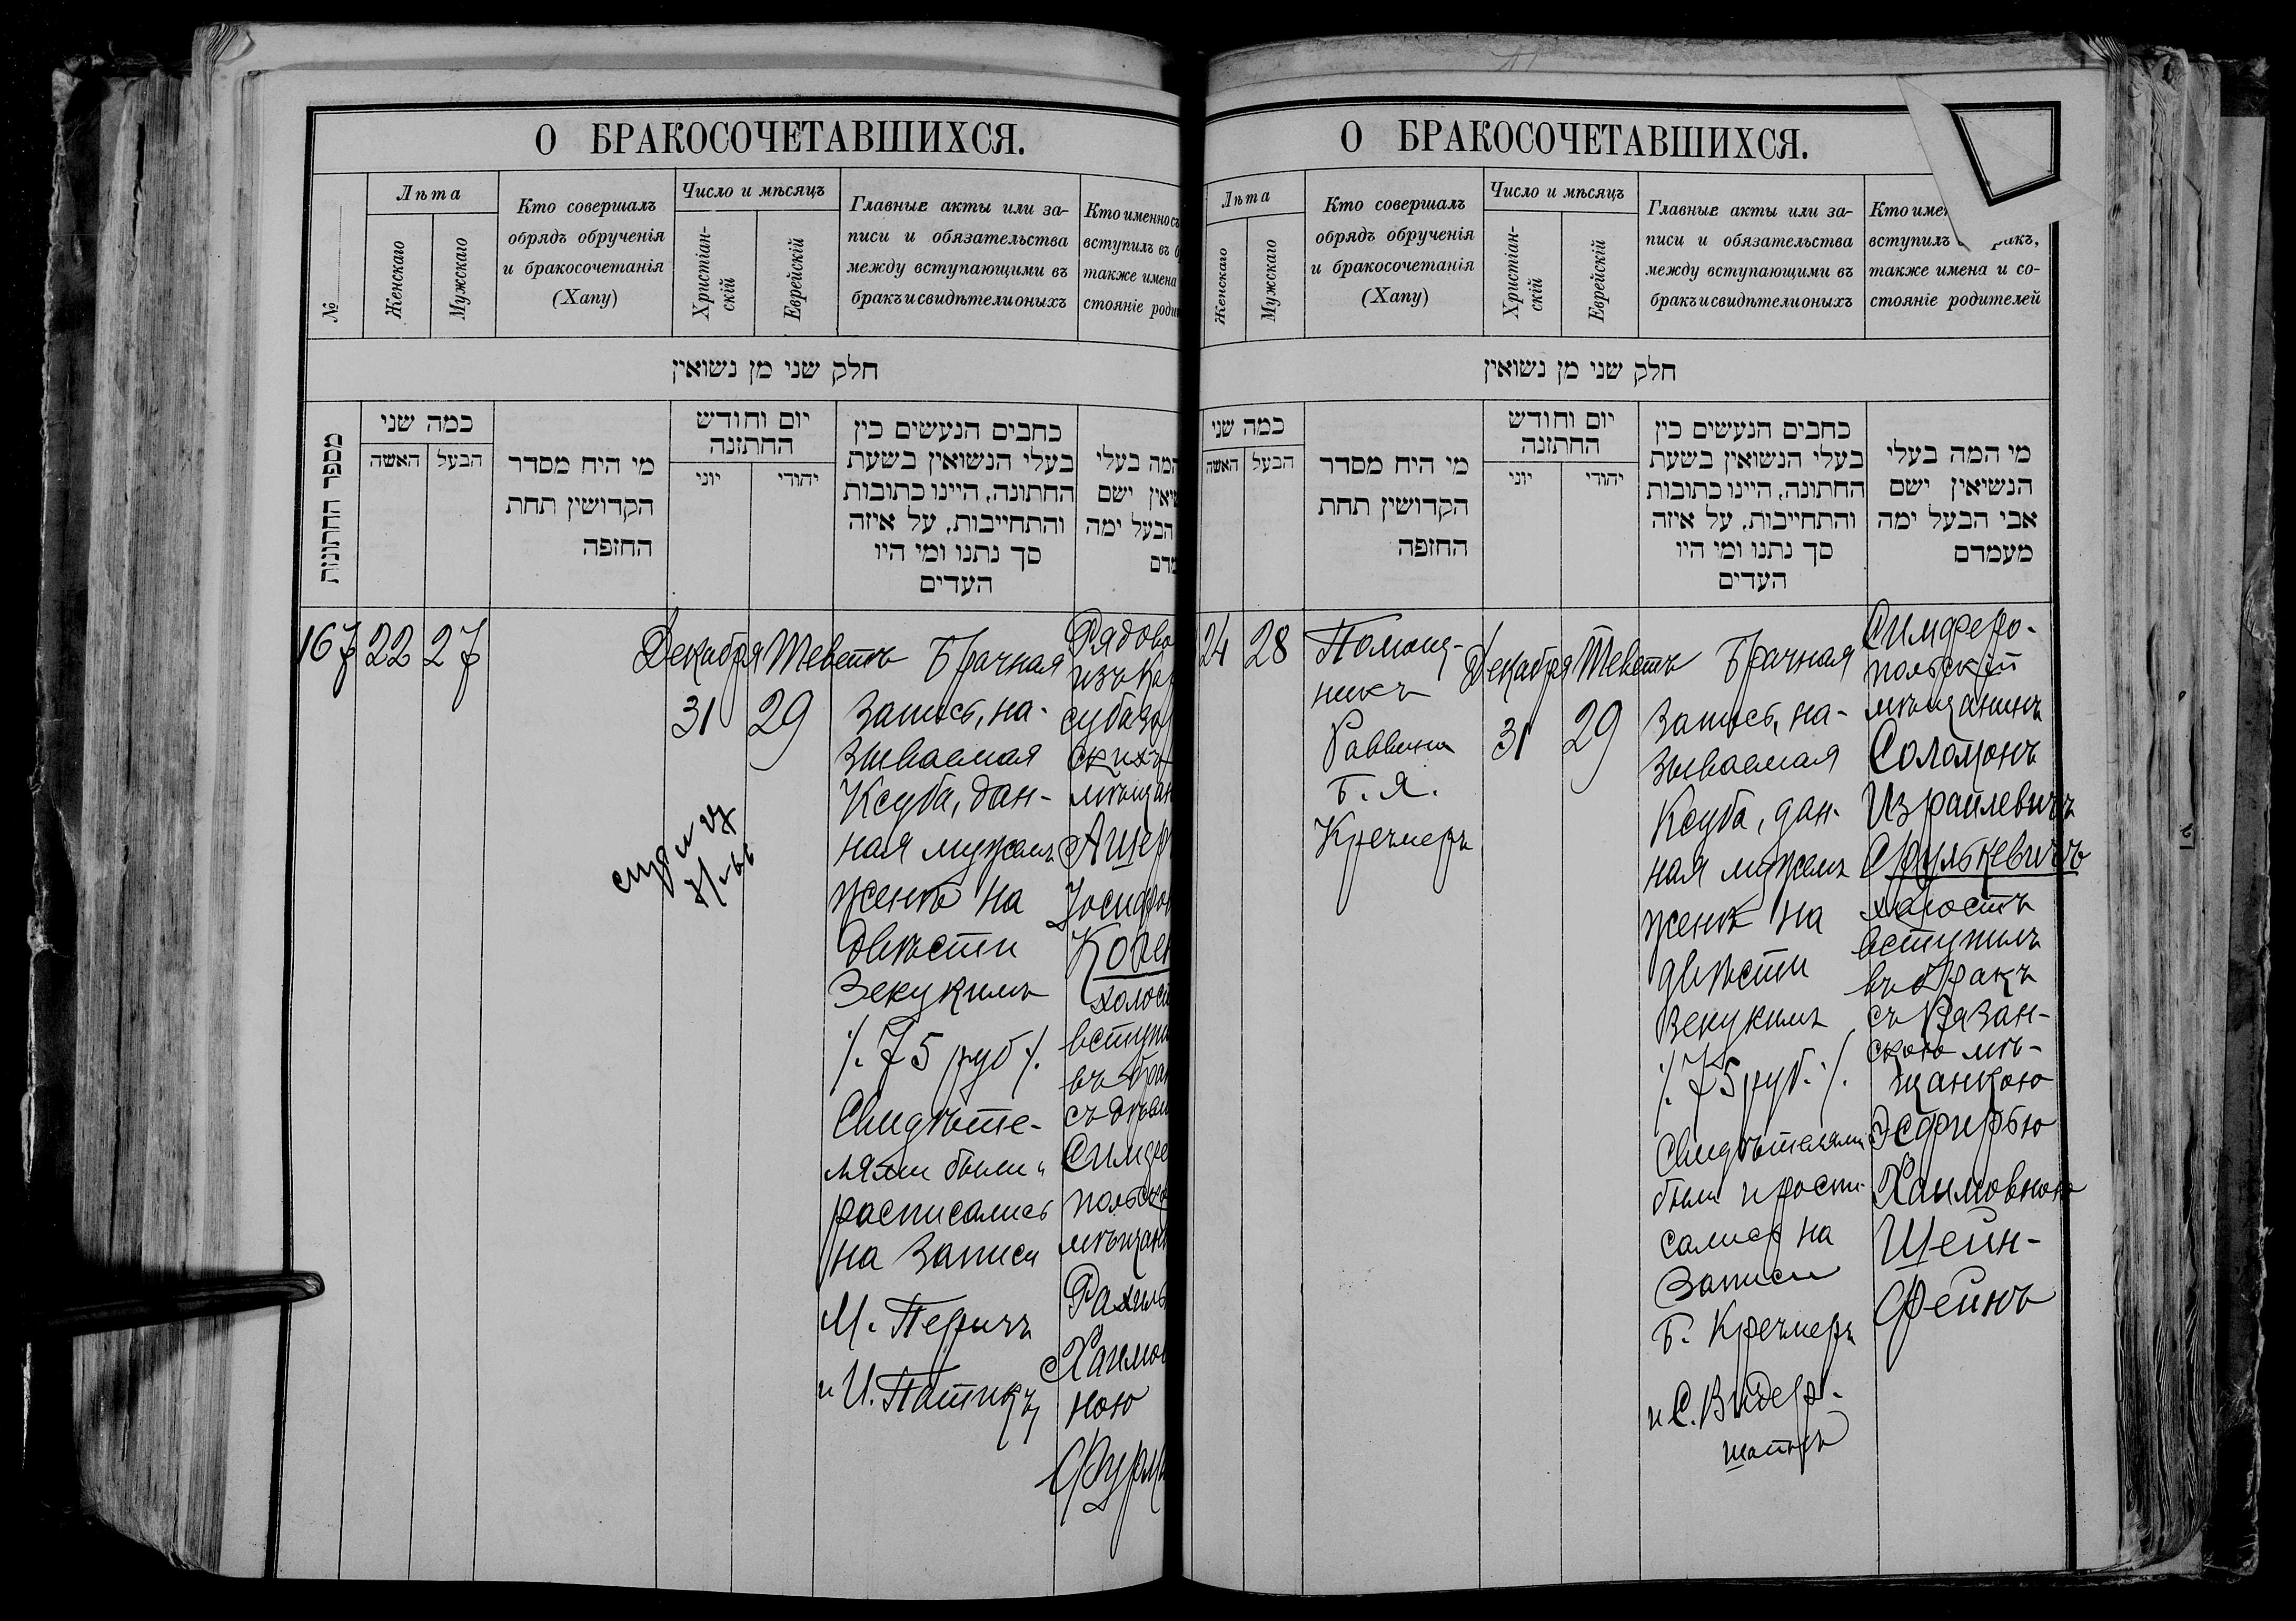 О БРАКОСОЧЕТАВШИХСЯ.
№
Лѣта
Женскаго
Мужскаго
Кто совершалъ
обрядъ обрученія
и бракосочетанія
(Хапу)
Число и мѣсяцъ
Христіан-
скій
Еврейскій
Главные акты или за-
писи и обязательства
между вступающими въ
бракъ и свидѣтели оныхъ
Кто именно съ
вступилъ въ б
также имена
стояніе роди
חלק שני מן נשואין
מספר החתונות
כמה שני
האשה
הבעל
מי היח מסדר
הקדושין תחת
החופה
יום וחודש
החתונה
יוני
יהודי
כחבים הנעשים כין
בעלי הנשואין בשעת
החתונה, היינו כתובות
והתחייבות, על איזה
סך נתנו ומי היו
העדים
המה בעלי
שואין ישם
הבעל ימה
מדם
167
22
27
Декабря
31
Теветъ
29
Брачная
запись, на-
зываемая
Ксуба, дан-
ная мужемъ
женѣ на
двѣсти
Зекукимъ
/. 75 руб /.
Свидѣте-
лями были и
расписались
на записи
М. Перичъ
и И. Патикъ
Рядово
изъ Ка
субаза
скихъ
мѣщан
Ашер
Іосифов
Коген
холост
вступи
въ брак
съ дѣви
Симфе
польско
мѣщан
Рахиль
Хаимов
ною
Фурм
О БРАКОСОЧЕТАВШИХСЯ.
Лѣта
Женскаго
Мужскаго
Кто совершалъ
обрядъ обрученія
и бракосочетанія
(Хапу)
Число и мѣсяцъ
Христіан-
скій
Еврейскій
Главные акты или за-
писи и обязательства
между вступающими въ
бракъ и свидѣтели оныхъ
Кто имен
вступилъ ракъ,
также имена и со-
стояніе родителей
חלק שני מן נשואין
כמה שני
האשה
הבעל
מי היח מסדר
הקדושין תחת
החופה
יום וחודש
החתונה
יוני
יהודי
כחבים הנעשים כין
בעלי הנשואין בשעת
החתונה, היינו כתובות
והתחייבות, על איזה
סך נתנו ומי היו
העדים
מי המה בעלי
הנשיאין ישם
אבי הבעל ימה
מעמדם
24
28
Помощ-
никъ
Раввина
Б. Я.
Кречмеръ
Декабря
31
Теветъ
29
Брачная
запись, на-
зываемая
Ксуба, дан-
ная мужемъ
женѣ на
двѣсти
Зекукимъ
/. 75 руб. /.
Свидѣтелями
были и распи-
сались на
записи
Б. Кречмеръ
и С. Видер-
шпиръ
Симферо-
польскій
мѣщанинъ
Соломонъ
Израилевичъ
Фулькевичъ
холостъ
вступилъ
въ бракъ
съ Рязан-
скою мѣ-
щанкою
Эсфирью
Хаимовною
Шейн-
Фейнъ